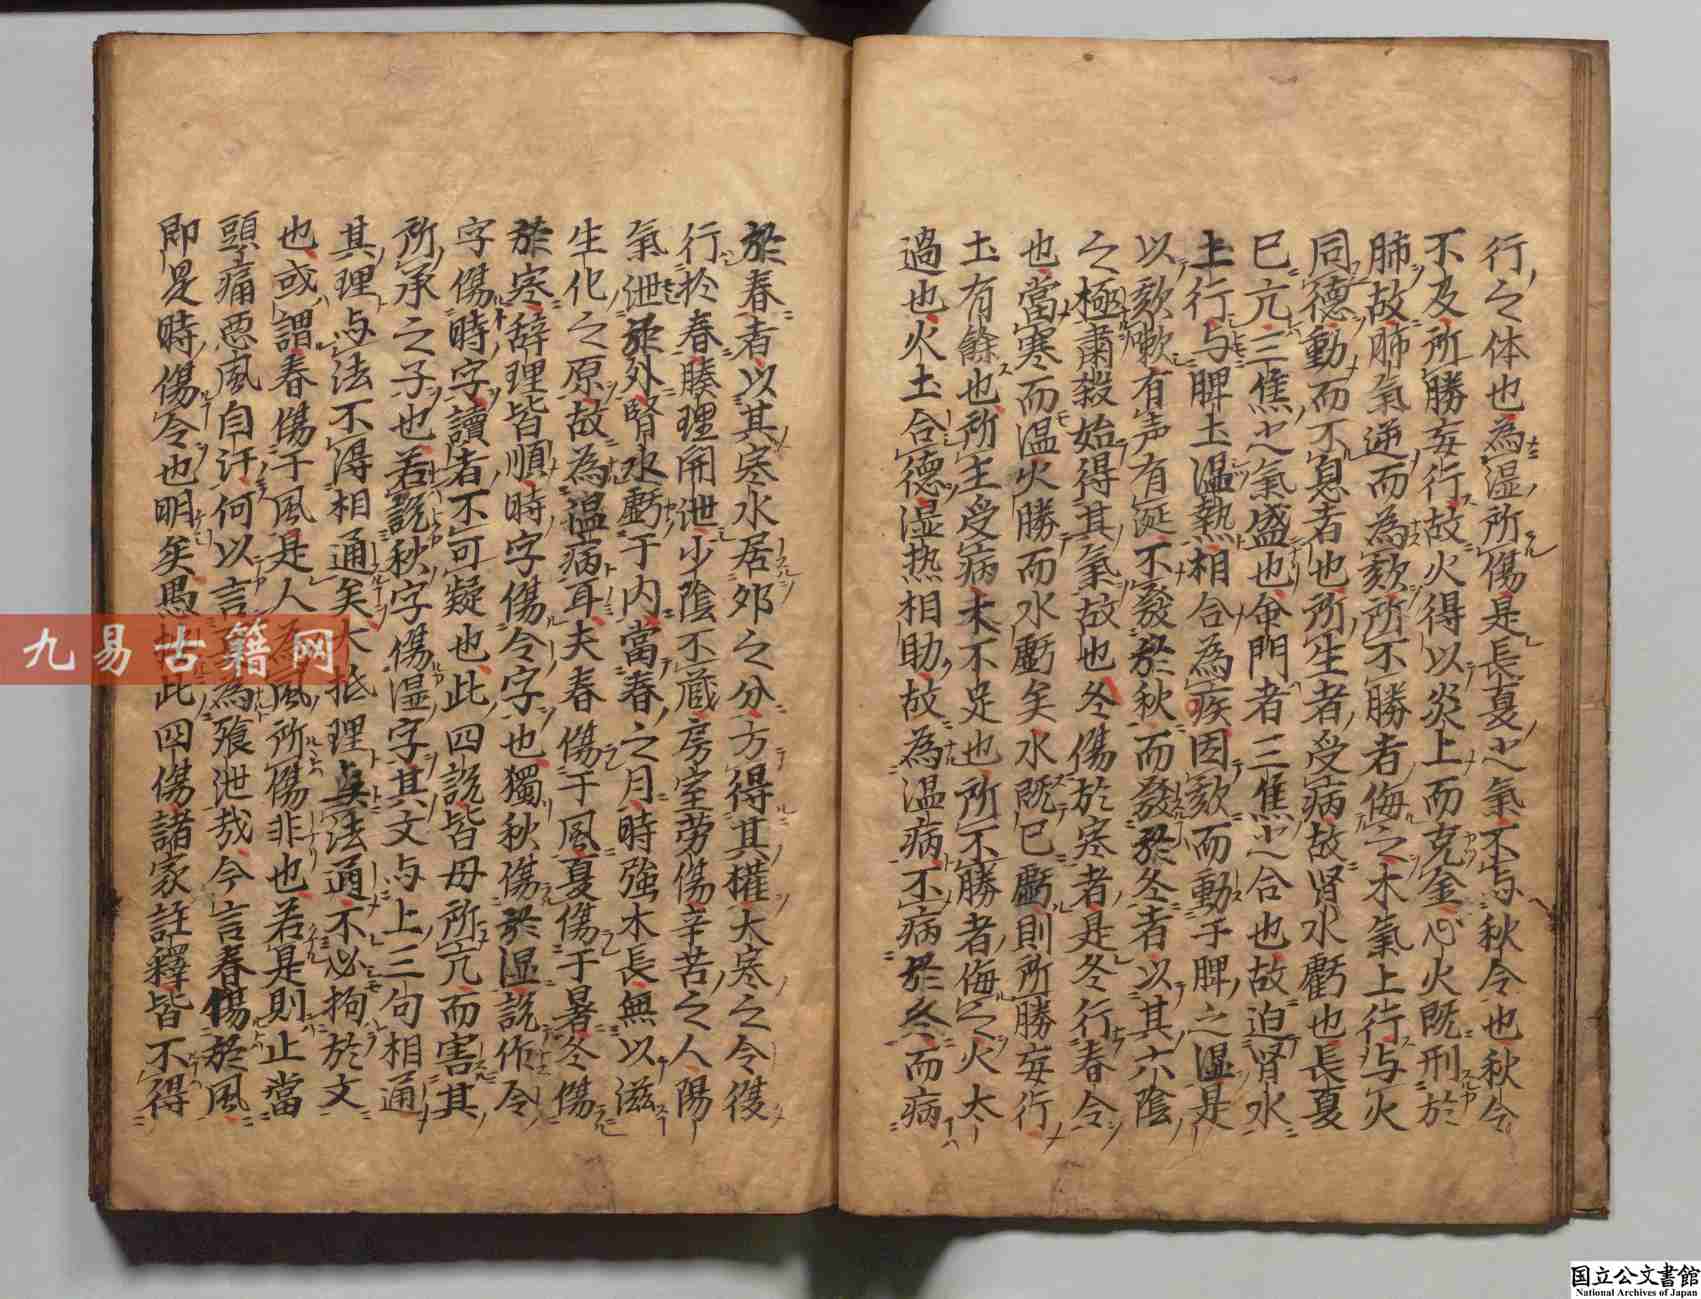 行之体也為湿所傷是長夏之氣不与秋令也秋令
不及所勝妄行故火得以炎上而克金心火既刑於
肺故肺氣逆而為欬所不勝者侮之木氣上行与火
同德動而不息者也所生者受病故肾水虧也長夏
已亢三焦之氣盛也命門者三焦之合也故迫肾水
土行与脾土温熱相合為疾因欬而動于脾之湿是
以欬嗽有声有涎不發於秋而發於冬者以其六陰
之極肅殺始得其氣故也冬傷於寒者是冬行春令
也當寒而温火勝而水虧矣水既已虧則所勝妄行
土有餘也所生受病木不足也所不勝者侮之火太
過也火土合德湿热相助故為温病不病於冬而病
於春者以其寒水居夘之分方得其權大寒之令復
行於春腠理開泄少陰不蔵房室劳傷辛苦之人陽
氣泄於外腎水虧于内當春之月時強木長無以滋
生化之原故為温病耳夫春傷于風夏傷于暑冬傷
於寒辞理皆順時字傷令字也獨秋傷於湿説作令
字傷時字讀者不可疑也此四説皆母所亢而害其
所承之子也若説秋字傷湿字其文与上三句相通
其理与法不得相通矣大抵理与法通不必拘於文
也或謂春傷于風是人為風所傷非也若是則止當
頭痛悪風自汗何以言為飱泄哉今言春傷於風
即是時傷令也明矣愚此四傷諸家註釋皆不得
九易古籍网
国立公文書館
National Archives of Japan